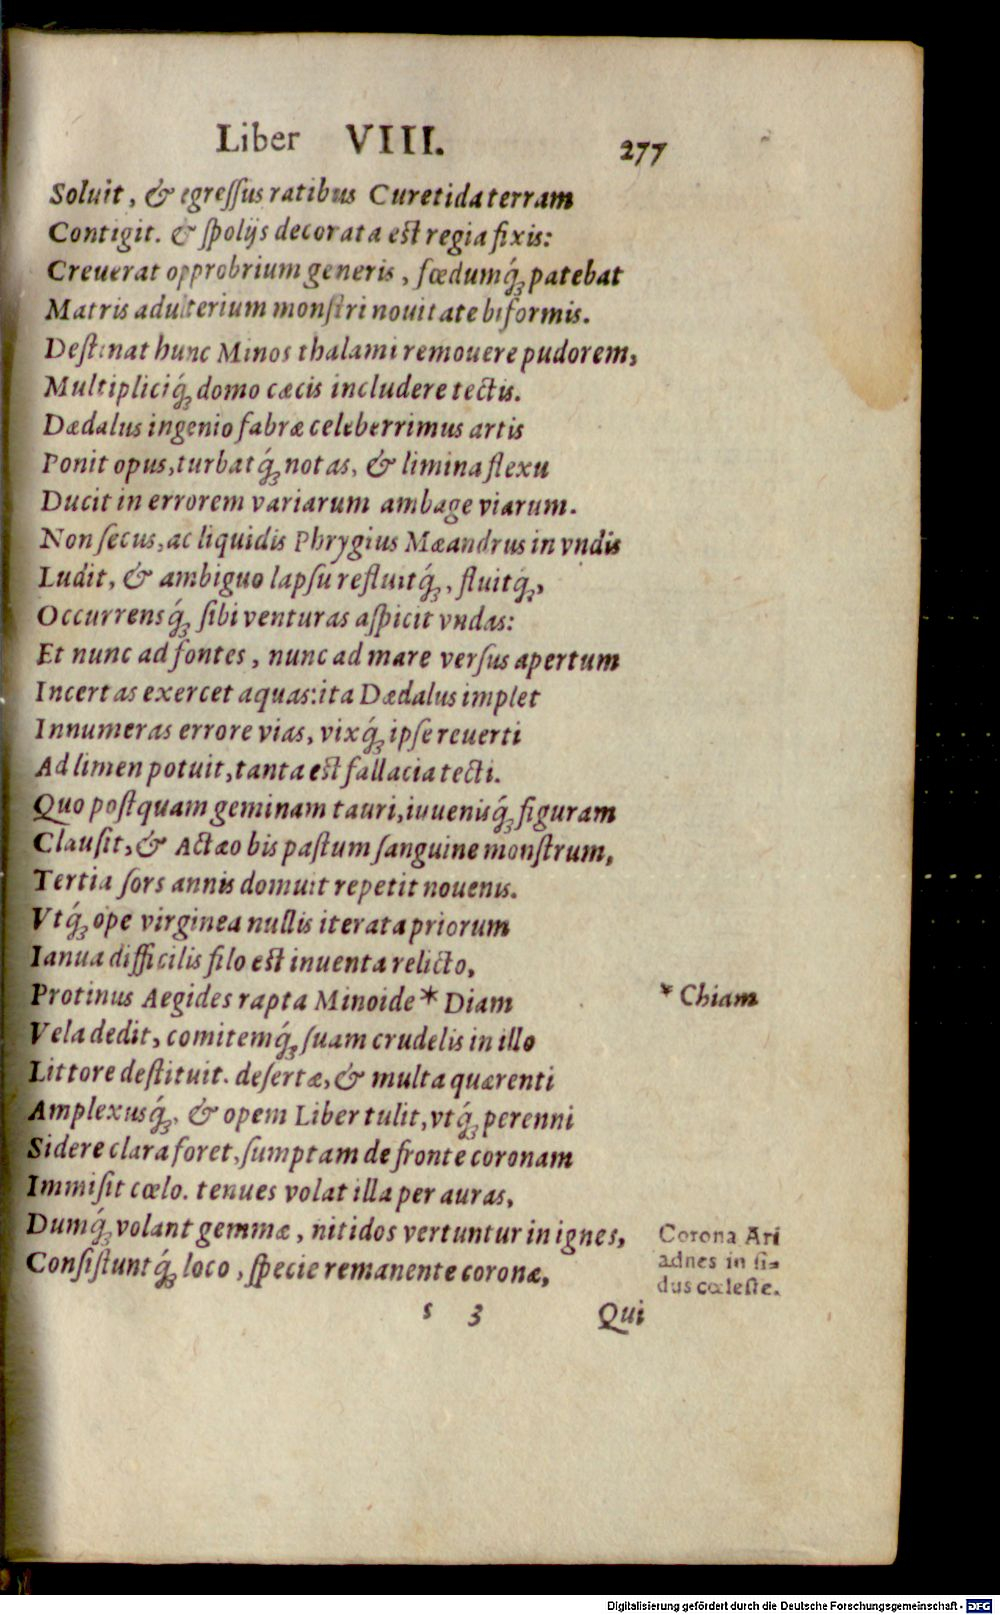 Liber VIII. 277
Soluit, & egreſſus ratibus Curetida terram
Contigit. & ſpolijs decorata est regia fixis:
Creuerat opprobrium generis, fœdumq́ꝫ patebat
Matris adulterium monſtri nouitate biformis.
Deſtinat hunc Minos thalami remouere pudorem,
Multipliciq́ꝫ domo cæcis includere tectis.
Dædalus ingenio fabræ celeberrimus artis
Ponit opus, turbatq́ꝫ notas, & limina flexu
Ducit in errorem variarum ambage viarum.
Non ſecus, ac liquidis Phrygius Mæandrus in vndis
Ludit, & ambiguo lapſu refluitq́ꝫ, fluitq́ꝫ,
Occurrensq́ꝫ ſibi venturas aſpicit vndas:
Et nunc ad fontes, nunc ad mare verſus apertum
Incertas exercet aquas: ita Dædalus implet
Innumeras errore vias, vixq́ꝫ ipſe reuerti
Ad limen potuit, tanta est fallacia tecti.
Quo poſtquam geminam tauri, iuuenisq́ꝫ figuram
Clauſit, & Actæo bis paſtum ſanguine monſtrum,
Tertia ſors annis domuit repetit nouenis.
Vtq́ꝫ ope virginea nullis iterata priorum
Ianua difficilis filo est inuenta relicto,
Protinus Aegides rapta Minoide * Diam
* Chiam
Vela dedit, comitemq́ꝫ ſuam crudelis in illo
Littore deſtituit. deſertæ, & multa quærenti
Amplexusq́ꝫ, & opem Liber tulit, vtq́ꝫ perenni
Sidere clara foret, ſumptam de fronte coronam
Immiſit cœlo. tenues volat illa per auras,
Dumq́ꝫ volant gemmæ, nitidos vertuntur in ignes,
Conſiſtuntq́ꝫ loco, ſpecie remanente coronæ,
Corona Ari
adnes in ſi=
dus cœleſte.
s 3 Qui
Digitalisierung gefördert durch die Deutsche Forschungsgemeinschaft - DFG